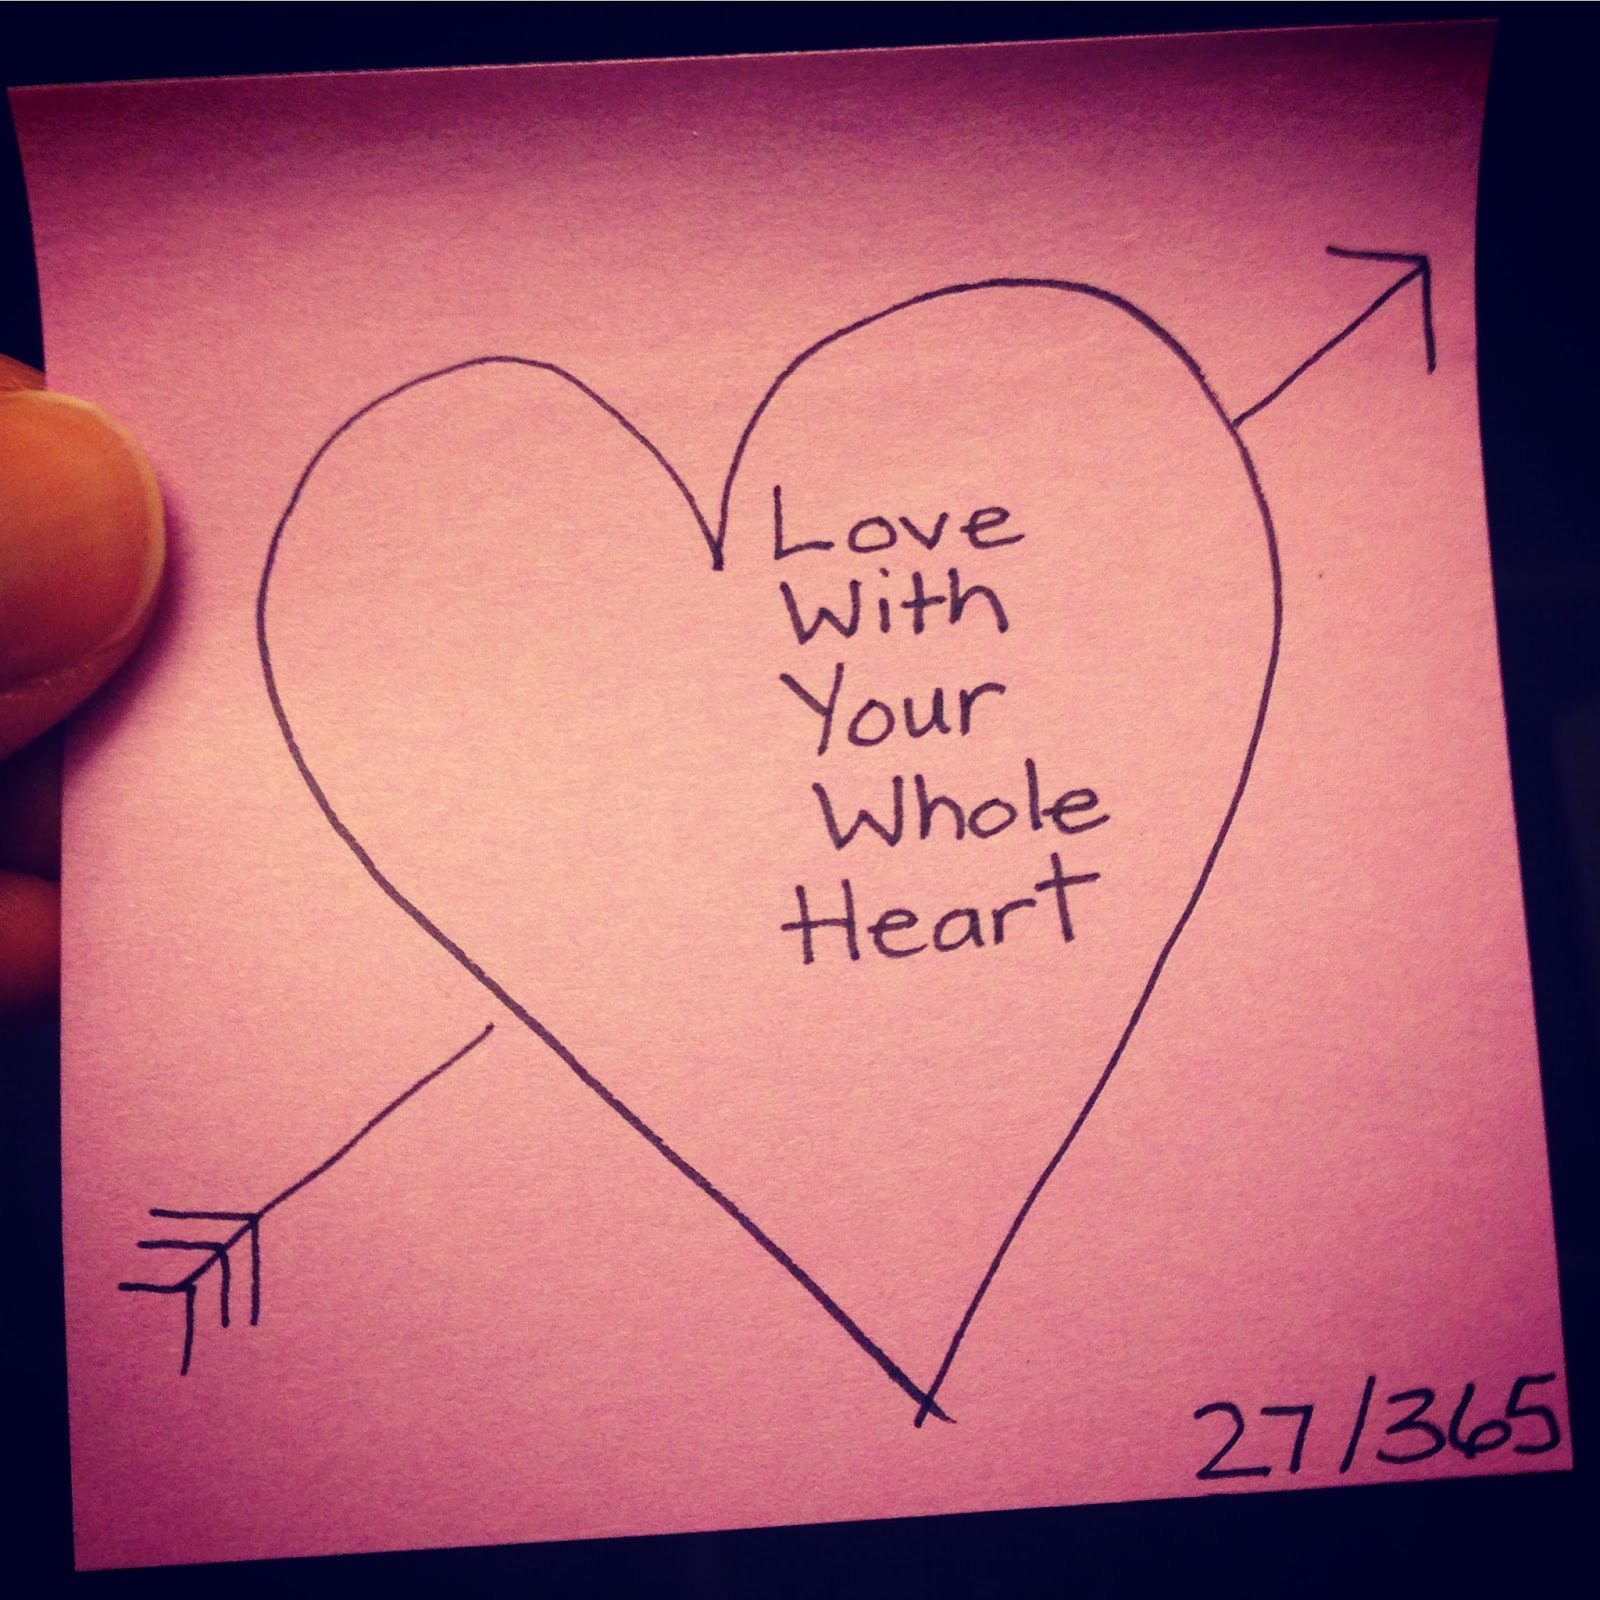 Love
With
Your
Whole
Heart
27/365